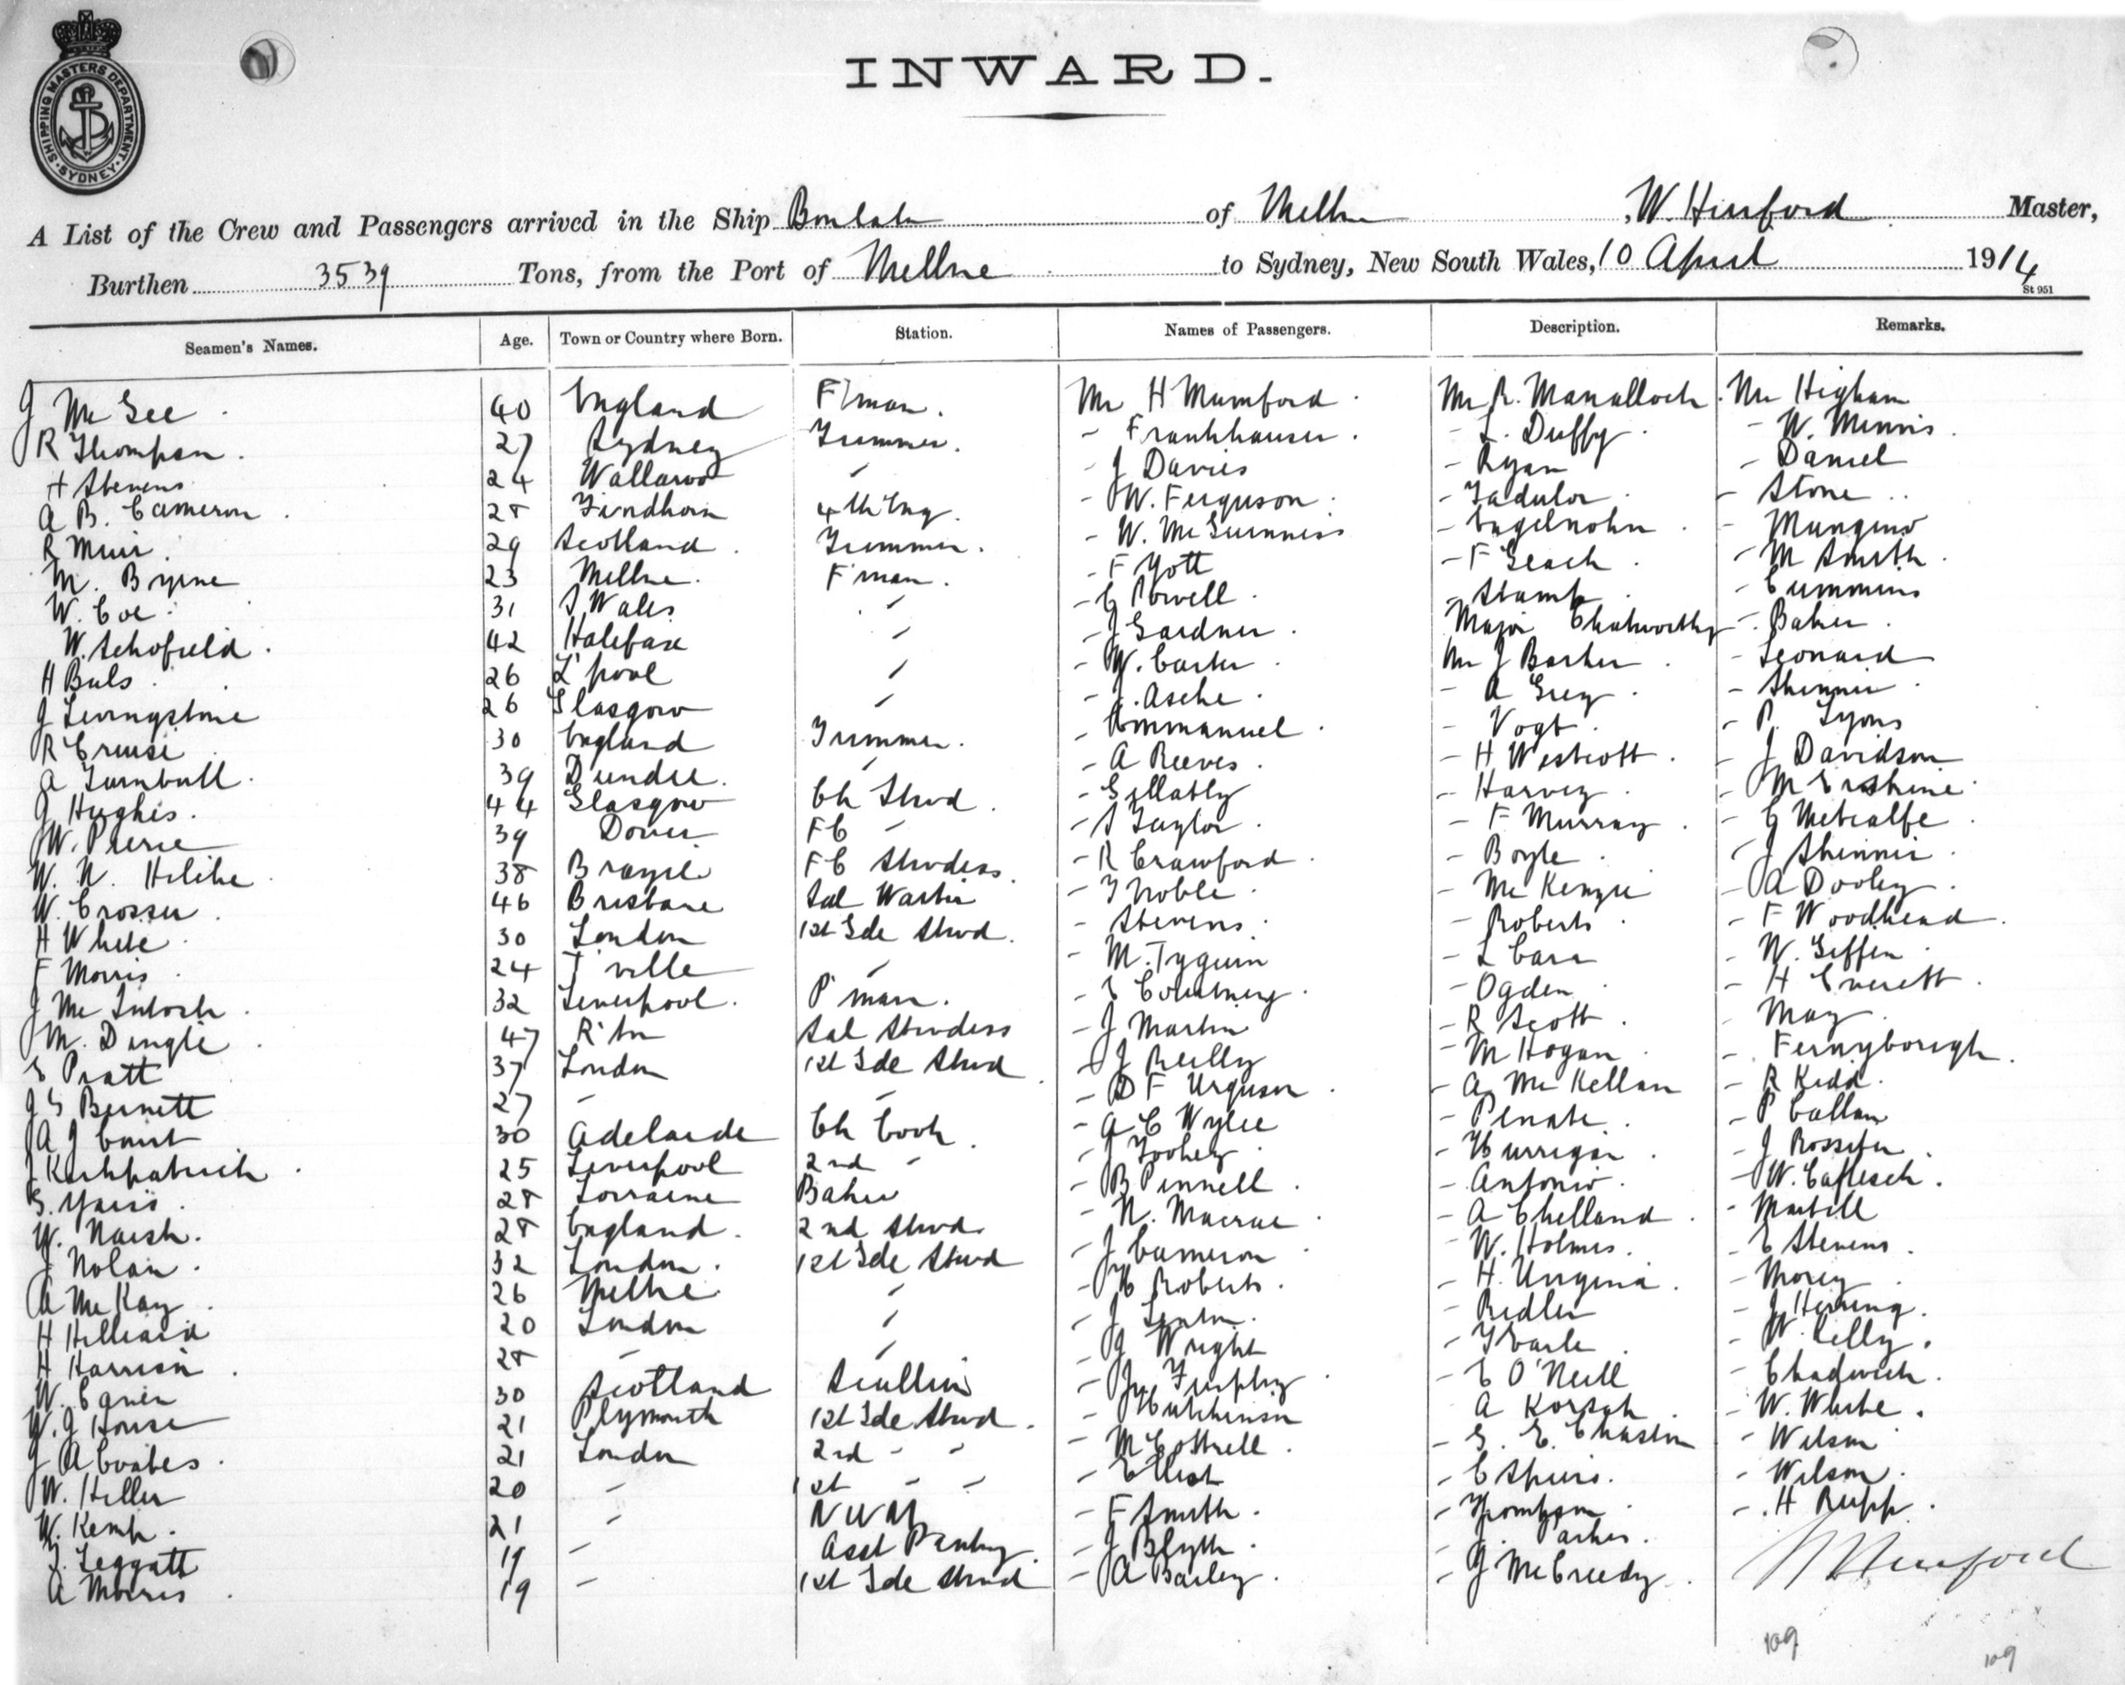 SHIPPING MASTERS DEPARTMENT · SYDNEY ·
INWARD.
A List of the Crew and Passengers arrived in the Ship of Melbne , W. Hinford Master,
Burthen 3539 Tons, from the Port of Melbne to Sydney, New South Wales, 10 April 1914
St 951
Seamen's Names. Age. Town or Country where Born. Station. Names of Passengers. Description. Remarks.
J McGee 40 England F/man. Mr H Mumford Mr R. Manalloch Mr Higham
R Thompson 27 Sydney Trimmer. - Frankhauser - L. Duffy - W. Minnis
H Stevens 24 Wallaroo " - J Davies - Ryan - Daniel
A B. Cameron 28 Findhorn 4th Eng. - W. Ferguson - - Stone
R Muir 29 Scotland Trimmer. - W. McGuinness - - Mungeno
M. Byrne 23 Melbne F'man. - F Yott - F Geach - M Smith
W. Coe 31 S Wales " - G Powell - Stamp - Cummins
W. Schofield 42 Halifax " - J Gardner Major Chatworthy - Baker
H Buls 26 L'pool " - W. Carter Mr J Barker - Leonard
J Livingstone 26 Glasgow " - J. Asche - A Grey - Skinner
R Cruise 30 England Trimmer. - Emmanuel - Vogt - P. Lyons
A Turnbull 39 Dundee " - A Reeves - H Westcott - J Davidson
J Hughes 44 Glasgow Ch Stwd - Gellatly - Harvey - M Erskine
W. Pierce 39 Dover FC " - S Taylor - F Murray - G Metcalfe
W. N. Hilike 38 Brazil FC Stwdess - R Crawford - Boyle - J Skinner
W. Crosser 46 Brisbane Sal Waiter - T Noble - McKenzie - A Dooley
H White 30 London 1st Sde Stwd - Stevens - Roberts - F Woodhead
F Morris 24 T'ville " - M. Tyquin - L Carr - W. Giffen
J McIntosh 32 Liverpool P'man - E Courtney - Ogden - H Everett
M. Dingle 47 R'ton Sal Stwdess - J Martin - R Scott - May
E Pratt 37 London 1st Sde Stwd - J Reilly - M Hogan - Fernyborough
J S Burnett 27 " " - D F Urguson - A McKellan - R Kidd
A J Count 30 Adelaide Ch Cook - A C Wylie - Penate - P Callan
J Kirkpatrick 25 Liverpool 2nd " - J Toohey - Hurrigan - J Rossiter
G. Yaiss 28 Lorraine Baker - B Pinnell - Antonio - W. Caflesch
W. Naish 28 England 2nd Stwd - N. Macrae - A Chelland - Martell
J Nolan 32 London 1st Sde Stwd - J Cameron - W. Holmes - E Stevens
A McKay 26 Melbne " - H Roberts - H. Virginia - Morey
H Hilliard 20 London " - J Senton - Ridler - J Hering
H Harrison 28 " " - J Wright - T Earle - W. Kelly
W. Caven 30 Scotland Scullion - Jn Furphy - E O'Neill - Chadwick
W. J House 21 Plymouth 1st Sde Stwd - Hutchinson A Korsak - W. White
J A Coates 21 London 2nd " " - M Cottrell - G. E. Chaston - Wilson
W. Hiller 20 " 1st " " - Elliot - C Spiers - Wilson
W. Kemp 21 " NWM - F Smith - Thompson - H Rupp
T. Leggatt 19 " Asst Pantry - J Blyth - J. Parker
A Morris 19 " 1st Sde Stwd - A Bailey - J McCreedy
W Hinford
109
109